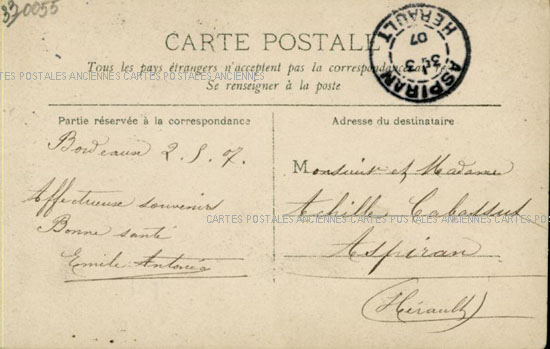 330055
CARTE POSTALE
Tous les pays étrangers n'acceptent pas la correspondance au
Se renseigner à la poste
ASPIRAN
HÉRAULT
3
07
CARTES POSTALES ANCIENNES CARTES POSTALES ANCIENNES CARTES POSTALES ANCIENNES
Partie réservée à la correspondance
Bordeaux 2.5.07.
Affectueux souvenirs
Bonne santé
Emile Antonia
Adresse du destinataire
Monsieur et Madame
Achille Cabassut
Aspiran
(Hérault)
CARTES POSTALES ANCIENNES CARTES POSTALES ANCIENNES